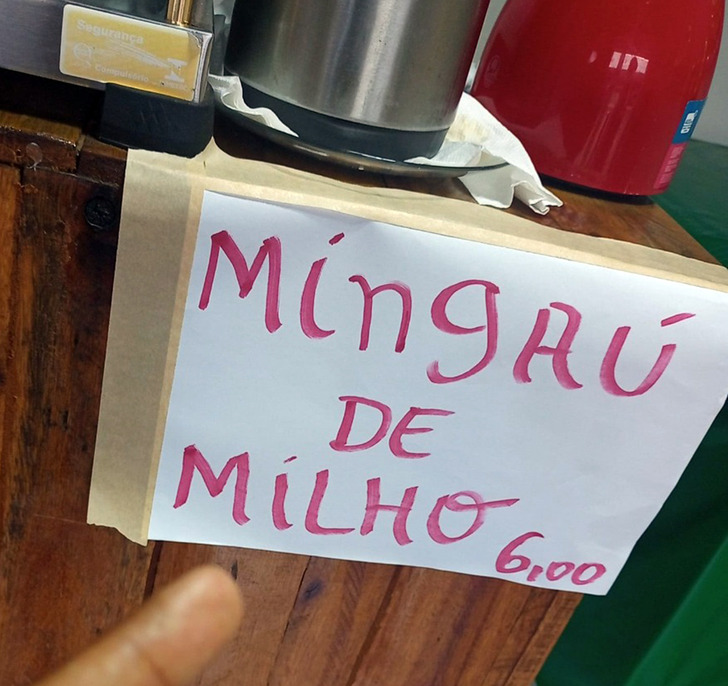 Segurança
Compulsório
Mingaú
DE
MILHO
6,00